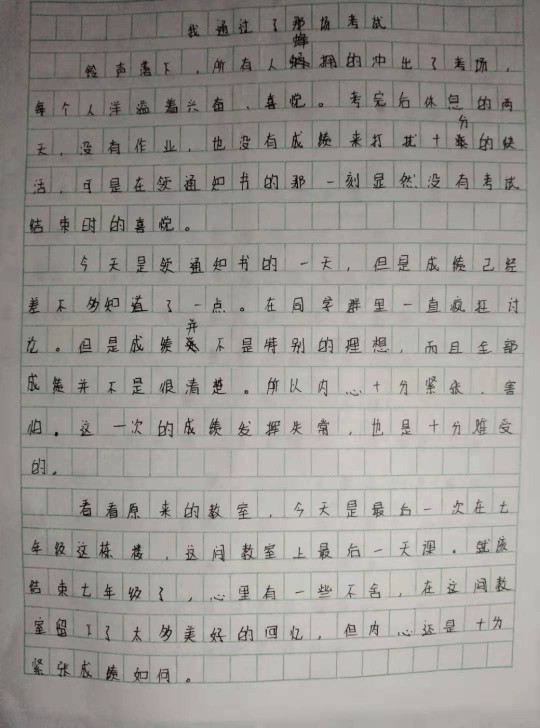 我通过了那场考试
铃声落下，所有人蜂拥的冲出了考场，
每个人洋溢着兴奋、喜悦。考完后休息的两
天，没有作业，也没有成绩来打扰十分的快
活，可是在领通知书的那一刻显然没有考试
结束时的喜悦。
今天是领通知书的一天，但是成绩已经
差不多知道了一点。在同学群里一直疯狂讨
论。但是成绩并不是特别的理想，而且全部
成绩并不是很清楚。所以内心十分紧张、害
怕。这一次的成绩发挥失常，也是十分难受
的。
看看原来的教室，今天是最后一次在七
年级这栋楼，这间教室上最后一天课。就该
结束七年级了，心里有一些不舍，在这间教
室留下了太多美好的回忆，但内心还是十分
紧张成绩如何。